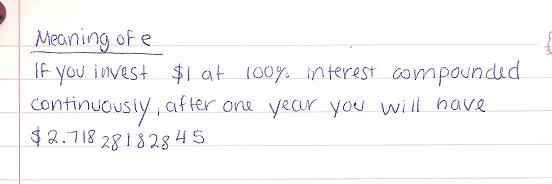 Meaning of e
If you invest $1 at 100% interest compounded
continuously, after one year you will have
$2.718281828 45